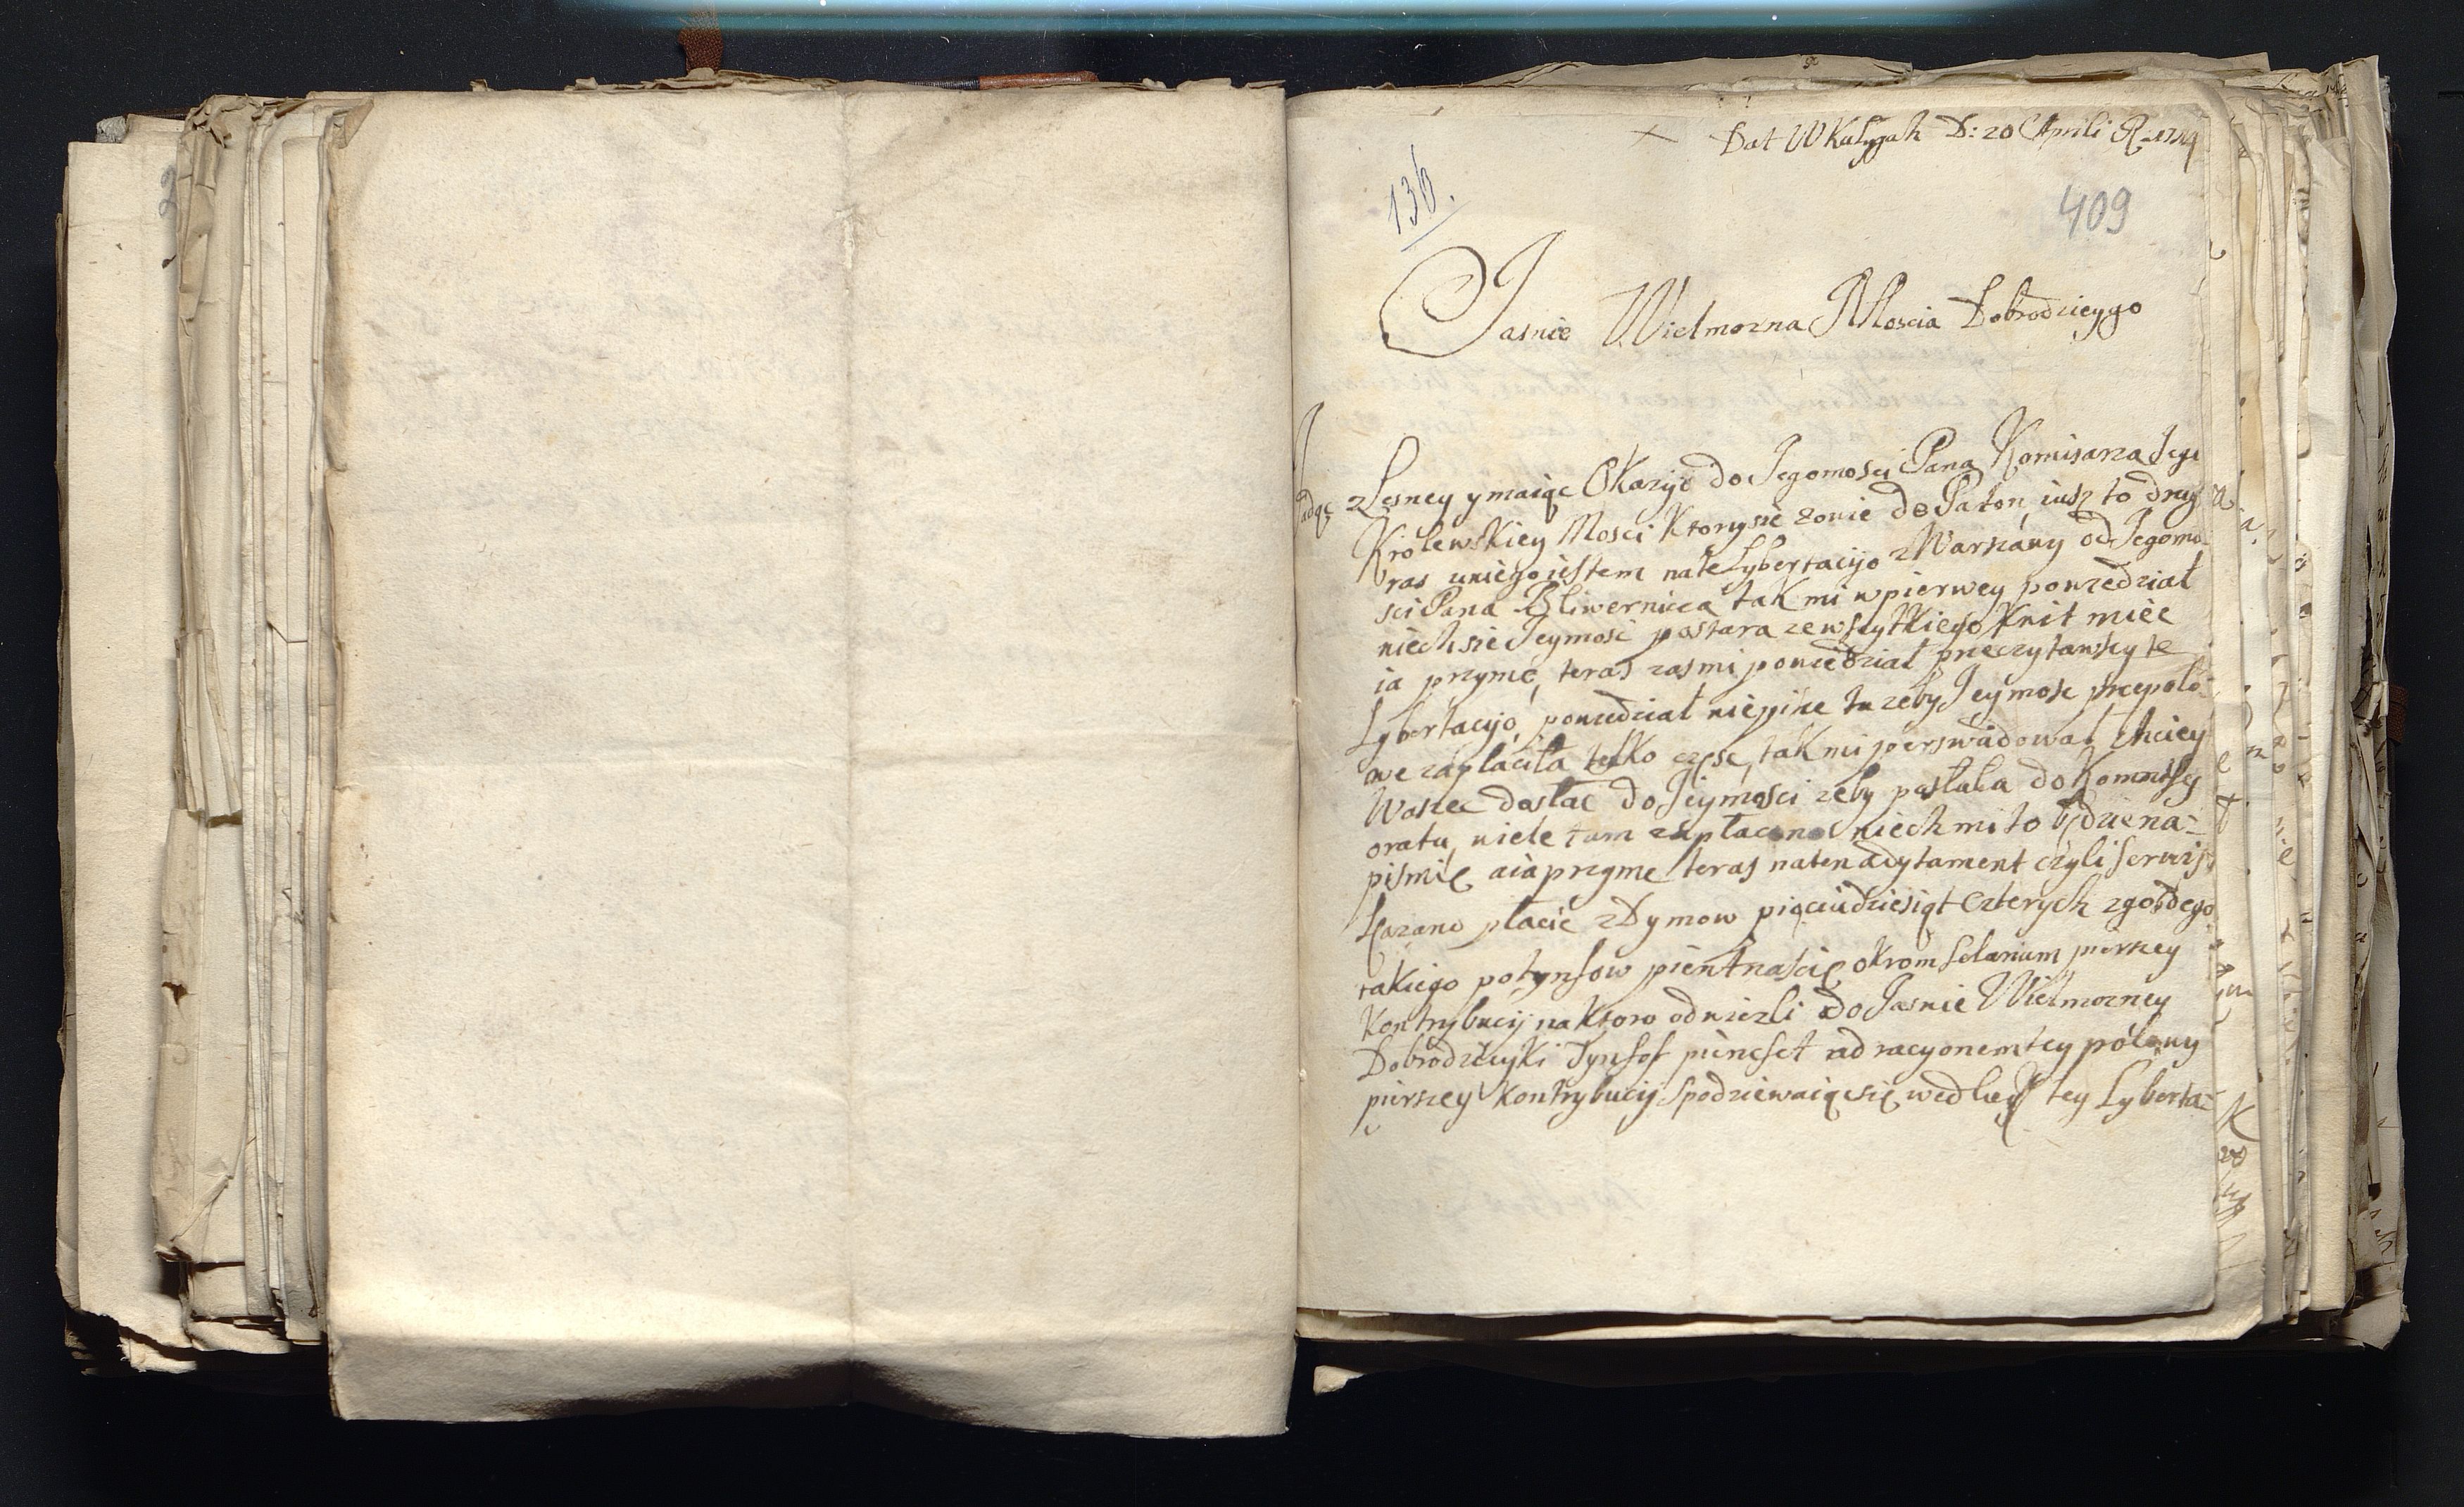 Dat W Kalygah D: 20 Aprili R
136.
409
Jasnie Wielmozna Moscia Dobrodzieygo
Jadąc z Lesney y maiąc Okazyjo do Jegomosci Pana Komisarza Jego
Krolewskiey Mosci Ktory sie zowie de Paton, iusz to drug
ras u niego iestem na te Lybertacyjo z Warszawy od Jegomo-
sci Pana Bliwernicza tak mi w pierwey powiedział
niech sie Jeymosc postara ze wszytkiego Kwit miec
ia przyme, teras zas mi powiedział przeczytawszy te
Lybertacyjo, powiedział nie pisze tu zeby Jeymosc przepoło-
we zapłaciła telko częsc, tak mi perswadował chciey
Waszec dosłac do Jeymosci zeby posłała do Komissy
oratu, wiele tam zapłacono niech mi to będzie na-
pismie a ia przyme teras na ten adytament czyli serwis
Kazano płacic z Dymow pięciudziesiąt czterych z gozdego
takiego po tynfow pientnascie okrom selarium pierszey
Kontrybucij na ktoro odwiezli do Jasnie Wielmozney
Dobrodzieyki Tynfof piencset ad racyonem tey połowy
pierszey Kontrybucij spodziewaiąc się według tey Lyberta-